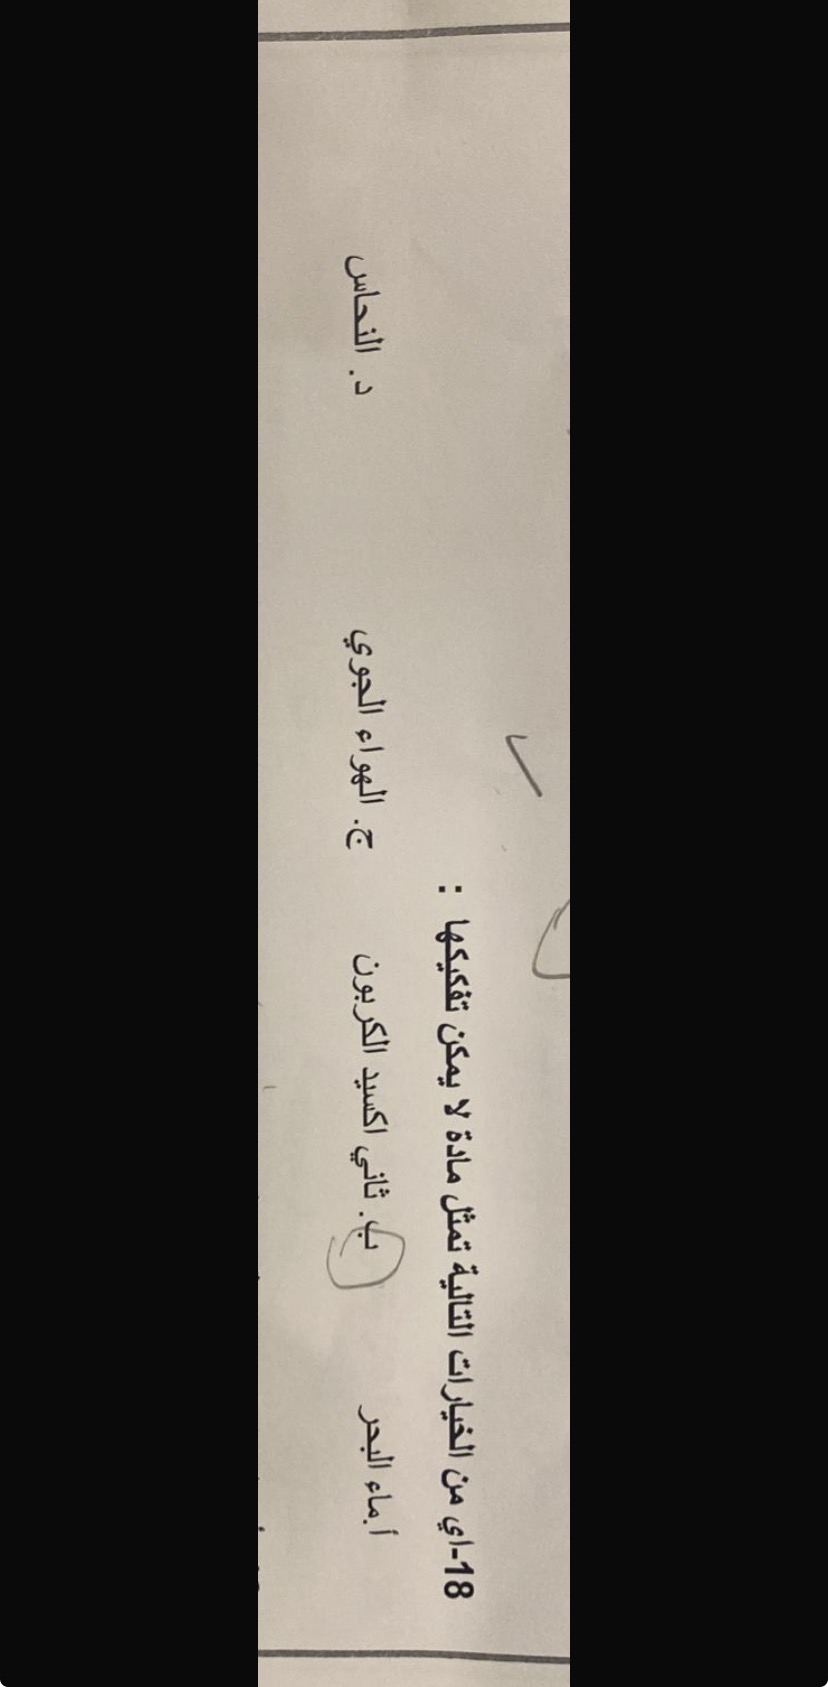 18-اي من الخيارات التالية تمثل مادة لا يمكن تفكيكها :
أ.ماء البحر ب. ثاني اكسيد الكربون ج. الهواء الجوي د. النحاس